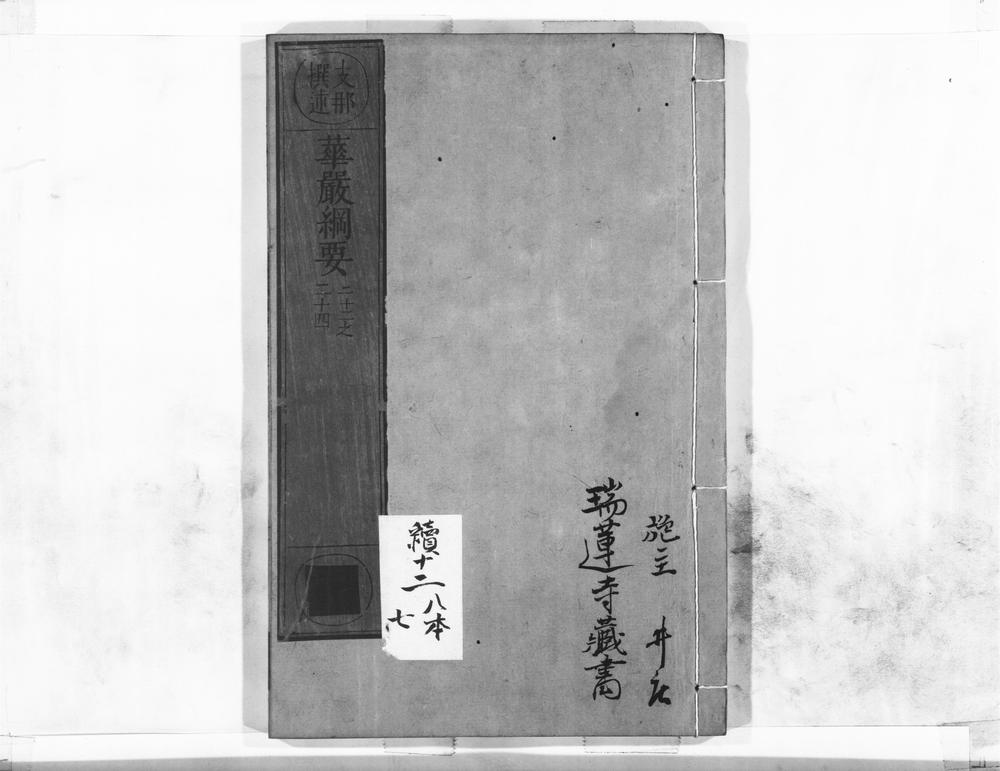 施主 井
瑞蓮寺藏書
續十二
八本
七
支那
撰述
華嚴綱要
二十二之
二十四